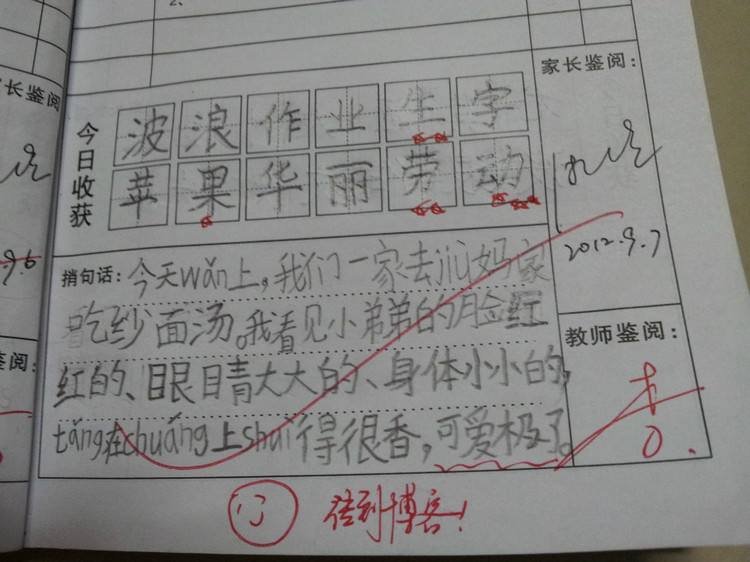 2、
长鉴阅
家长鉴阅：
今日收获
波浪作业生字
苹果华丽劳动
2012.9.7
9.6
捎句话：今天wǎn上，我们一家去jiù妈家
吃炒面汤。我看见小弟弟的脸红
红的、眼睛大大的、身体小小的，
tǎng在chuáng上shuì得很香，可爱极了。
教师鉴阅：
鉴阅：
传到博客！